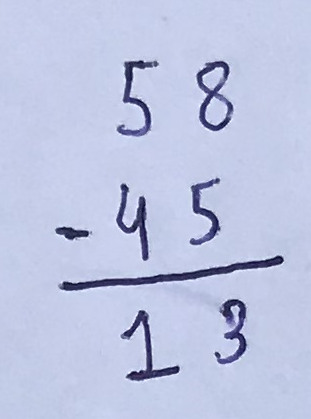 58
- 45
13